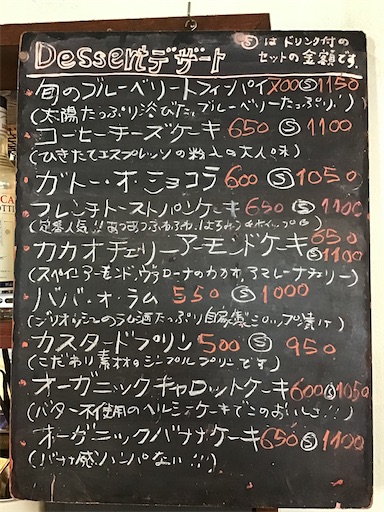 Dessert デザート
Ⓢは ドリンク付の
セットの金額です。
旬のブルーベリートフィンパイ 700 Ⓢ 1150
(太陽たっぷり浴びたブルーベリーたっぷり!)
コーヒーチーズケーキ 650 Ⓢ 1100
(ひきたてエスプレッソの粉入の大人味)
ガトー・オ・ショコラ 600 Ⓢ 1050
フレンチトーストパンケーキ 650 Ⓢ 1100
(定番人気!! あつあつふわふわ はちみつ
カカオチェリーアーモンドケーキ 650
Ⓢ 1100
(スペインアーモンド、ヴァローナのカカオ、アマレーナチェリー)
ババ・オ・ラム 550 Ⓢ 1000
ラム酒たっぷり自家製シロップ漬け)
カスタードプリン 500 Ⓢ 950
(こだわり素材のシンプルプリンです)
オーガニックキャロットケーキ 600 Ⓢ 1050
(バター不使用のヘルシーケーキでこのおいしさ!!)
オーガニックバナナケーキ 650 Ⓢ 1100
(バナナ感ハンパない!!!)